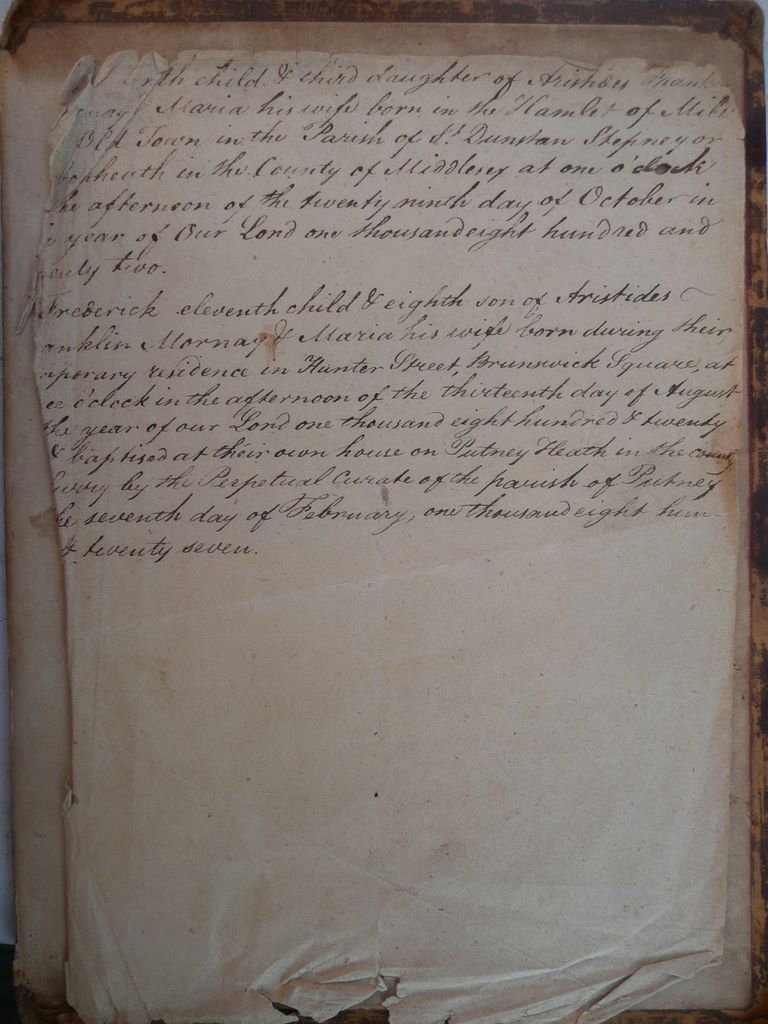 child & third daughter of Aristides Frank
Maria his wife born in the Hamlet of Mile
Old Town in the Parish of St Dunstan Stepney or
in the County of Middlesex at one o'clock
the afternoon of the twenty ninth day of October in
year of Our Lord one thousand eight hundred and
enty two.
Frederick eleventh child & eighth son of Aristides
anklin Mornay & Maria his wife born during their
mporary residence in Hunter Street, Brunswick Square, at
ee o'clock in the afternoon of the thirteenth day of August
the year of our Lord one thousand eight hundred & twenty
& baptised at their own house on Putney Heath in the county
Surrey by the Perpetual Curate of the parish of Putney
he seventh day of February, one thousand eight hun-
& twenty seven.